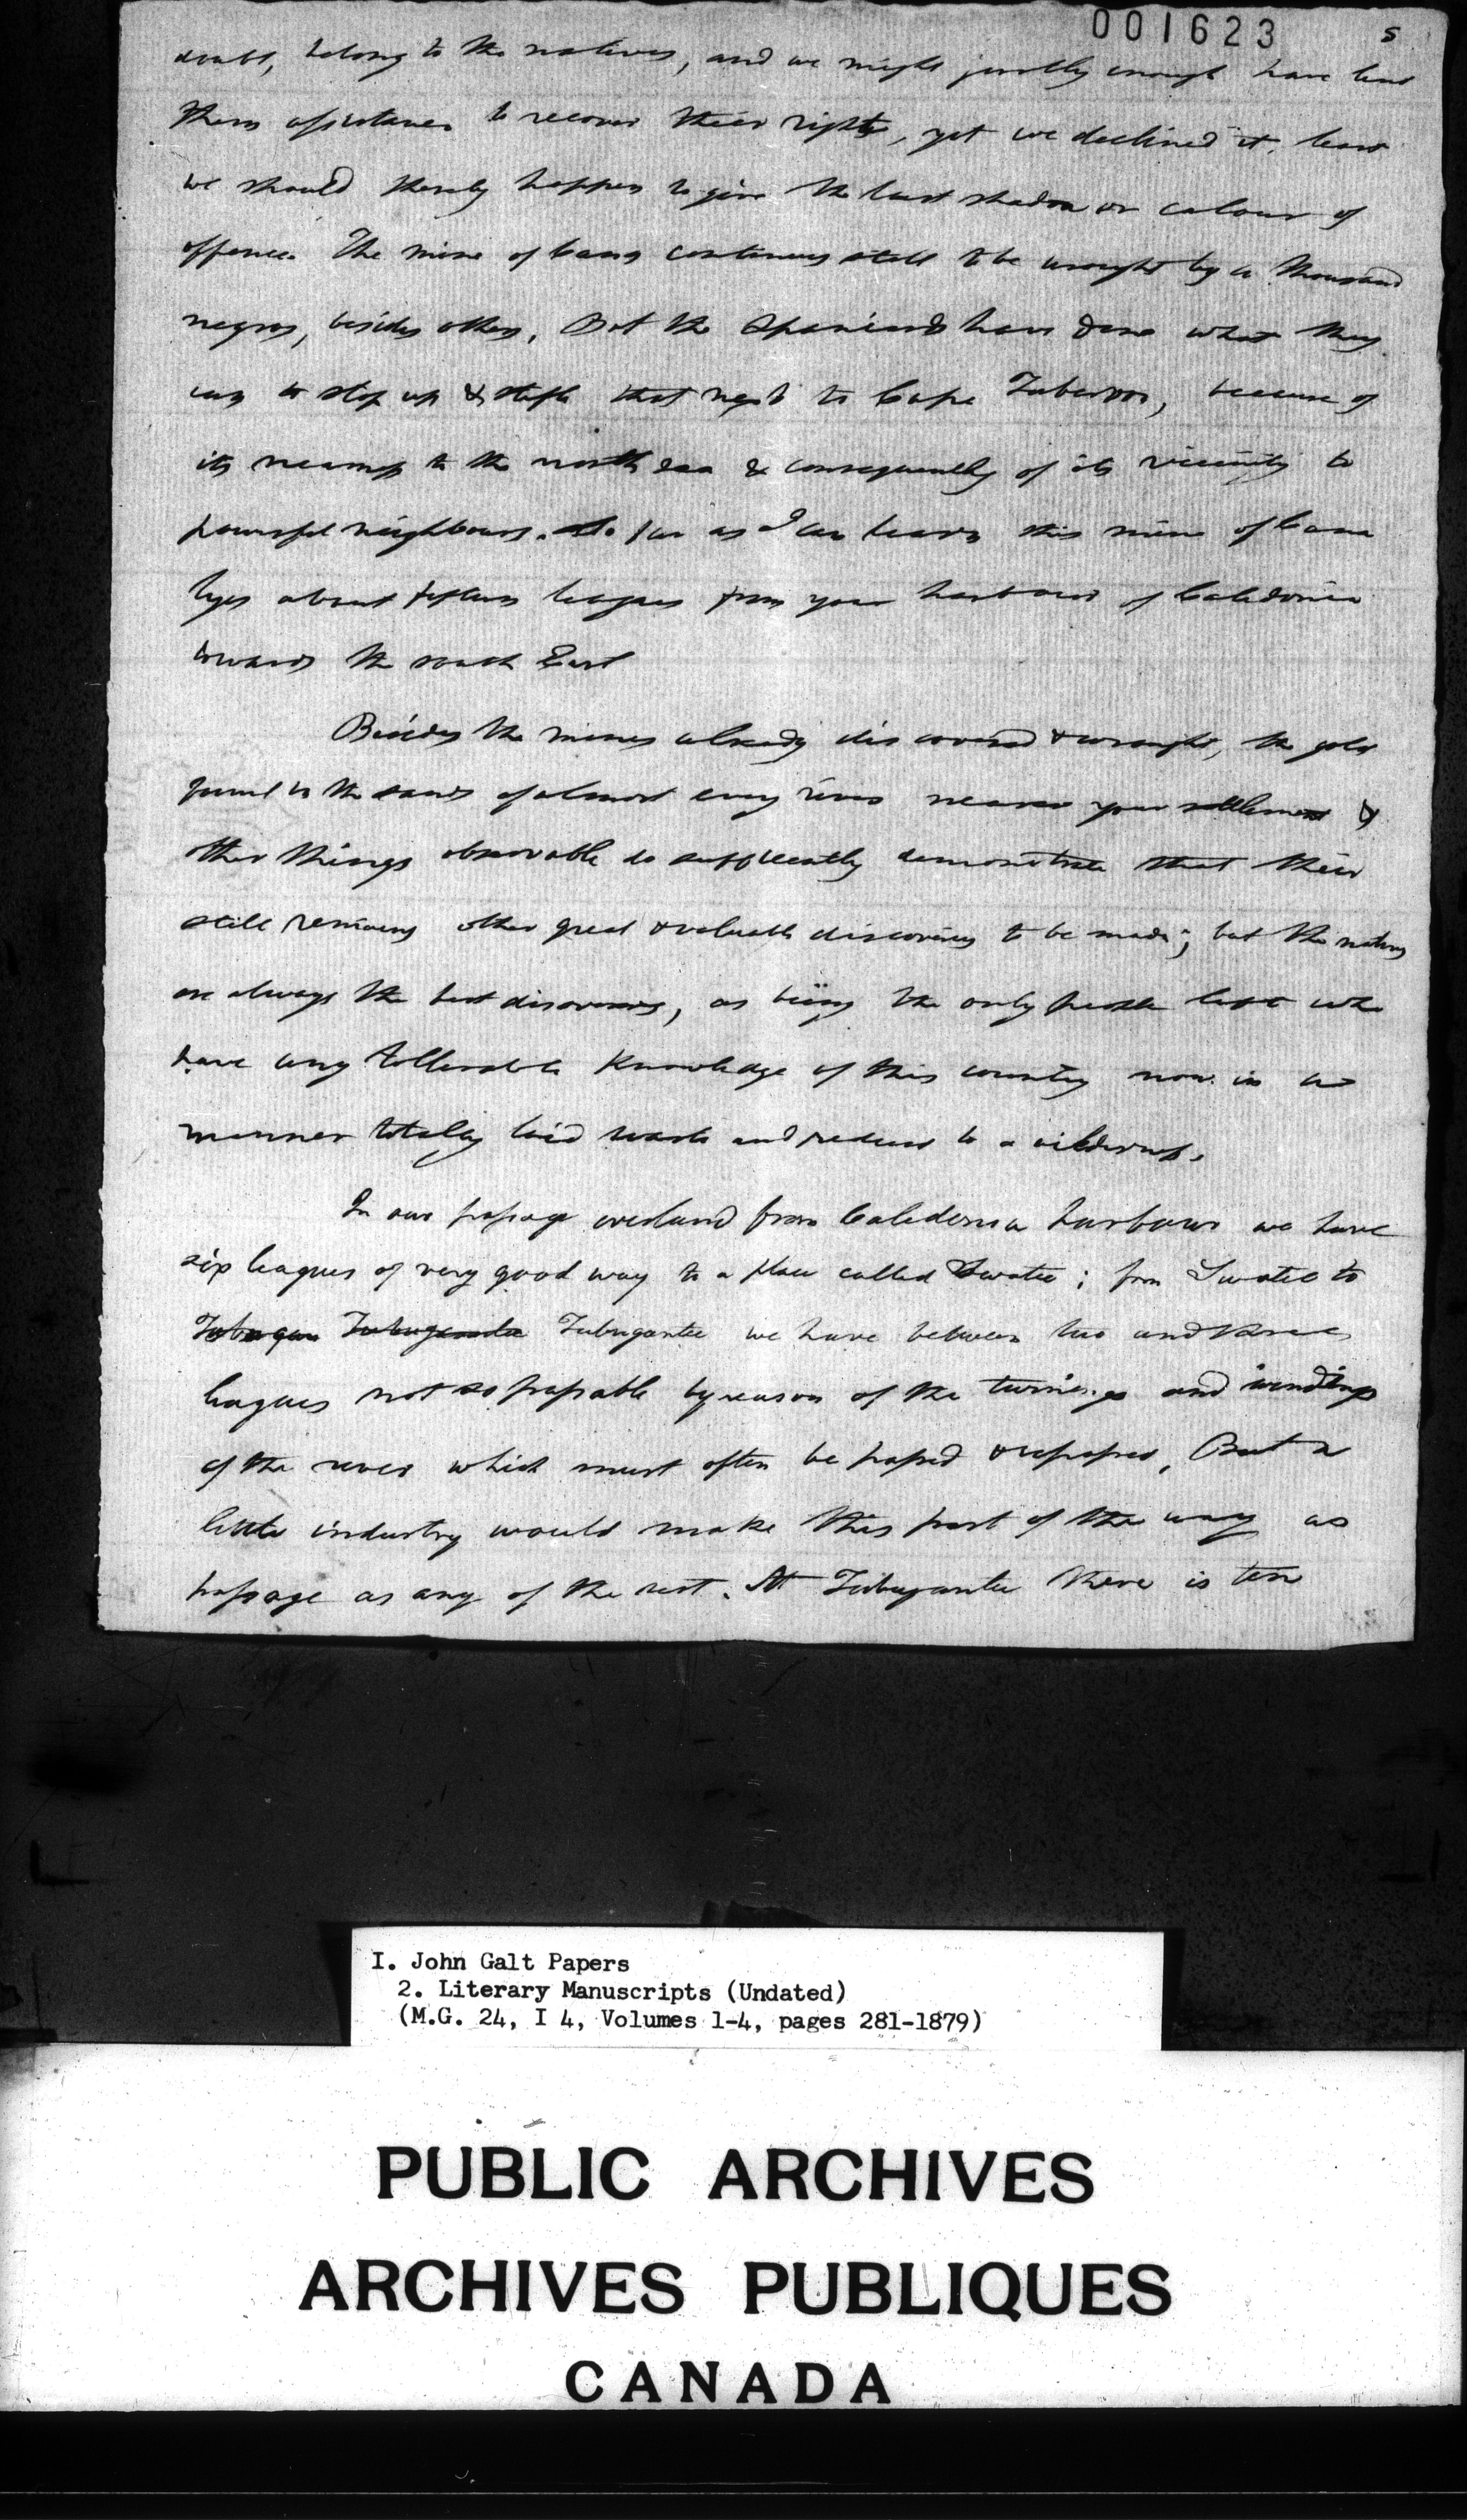 001623
5
doubt, belong to the natives, and we might justly enough have lent
them assistance to recover their rights, yet we declined it, least
we should thereby happen to give the least shadow or colour of
offence. The mine of Cana continues still to be wrought by a thousand
negros, besides others, But the Spaniards have done what they
can to stop up & stifle that next to Cape Tuberon, because of
its nearness to the north sea & consequently of its vicinity to
powerful neighbours. So far as I can learn this mine of Cana
lyes about fifteen leagues from your harbour of Caledonia
towards the south East
Besides the mines already discovered & wrought, the gold
found in the sands of almost every river near your settlement &
other things observable do sufficiently demonstrate that their
still remains other great & valuable discoverys to be made; but the natives
are always the best discoverers, as being the only people left who
have any tollerable knowledge of this country now in a
manner totally laid waste and reduced to a wilderness.
In our passage overland from Caledonia harbour we have
six leagues of very good way to a place called Swatee; from Swatee to
Tubugantee we have between two and three
leagues not so passable by reason of the turnings and windings
of the river which must often be passed & repassed, But a
little industry would make this part of the way as
passage as any of the rest. At Tubugantee there is ten
I. John Galt Papers
2. Literary Manuscripts (Undated)
(M.G. 24, I 4, Volumes 1-4, pages 281-1879)
PUBLIC ARCHIVES
ARCHIVES PUBLIQUES
CANADA